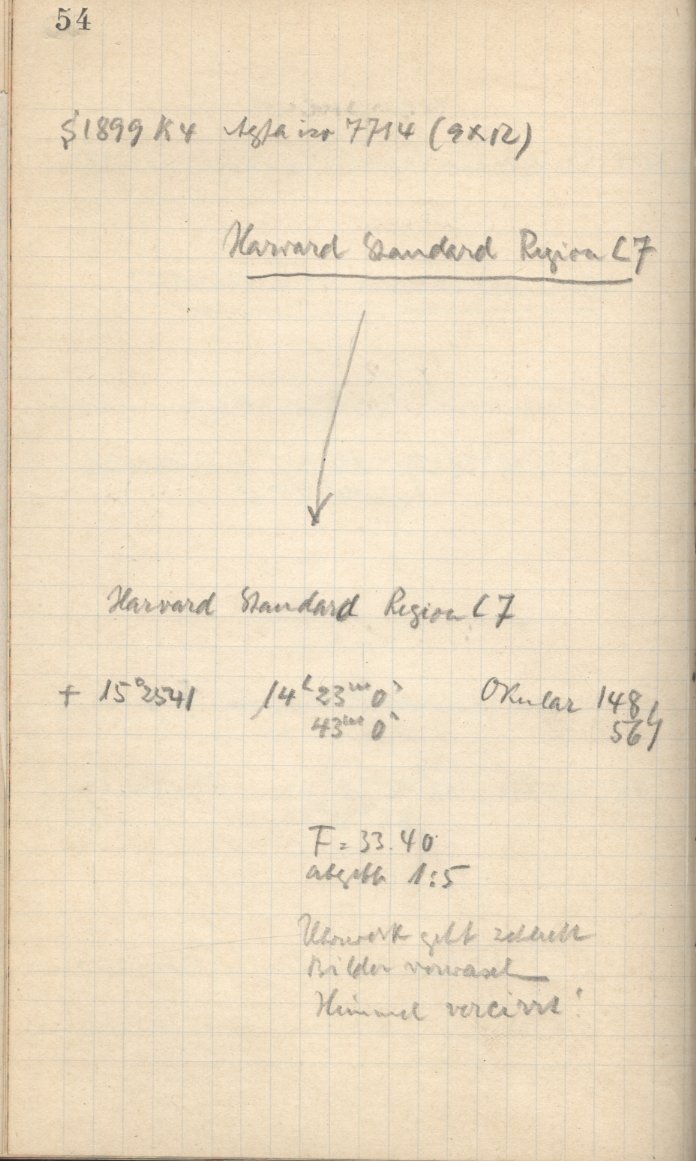 54
S1899 K4 Agfa iso 7714 (9x12)
Harvard Standard Region C7
Harvard Standard Region C7
+ 15°2541 14h23m0s Okular 148
43m0s 56
F = 33.40
abgebl 1:5
Uhrwerk geht schlecht
Bilder verwasch
Himmel vercirrt!